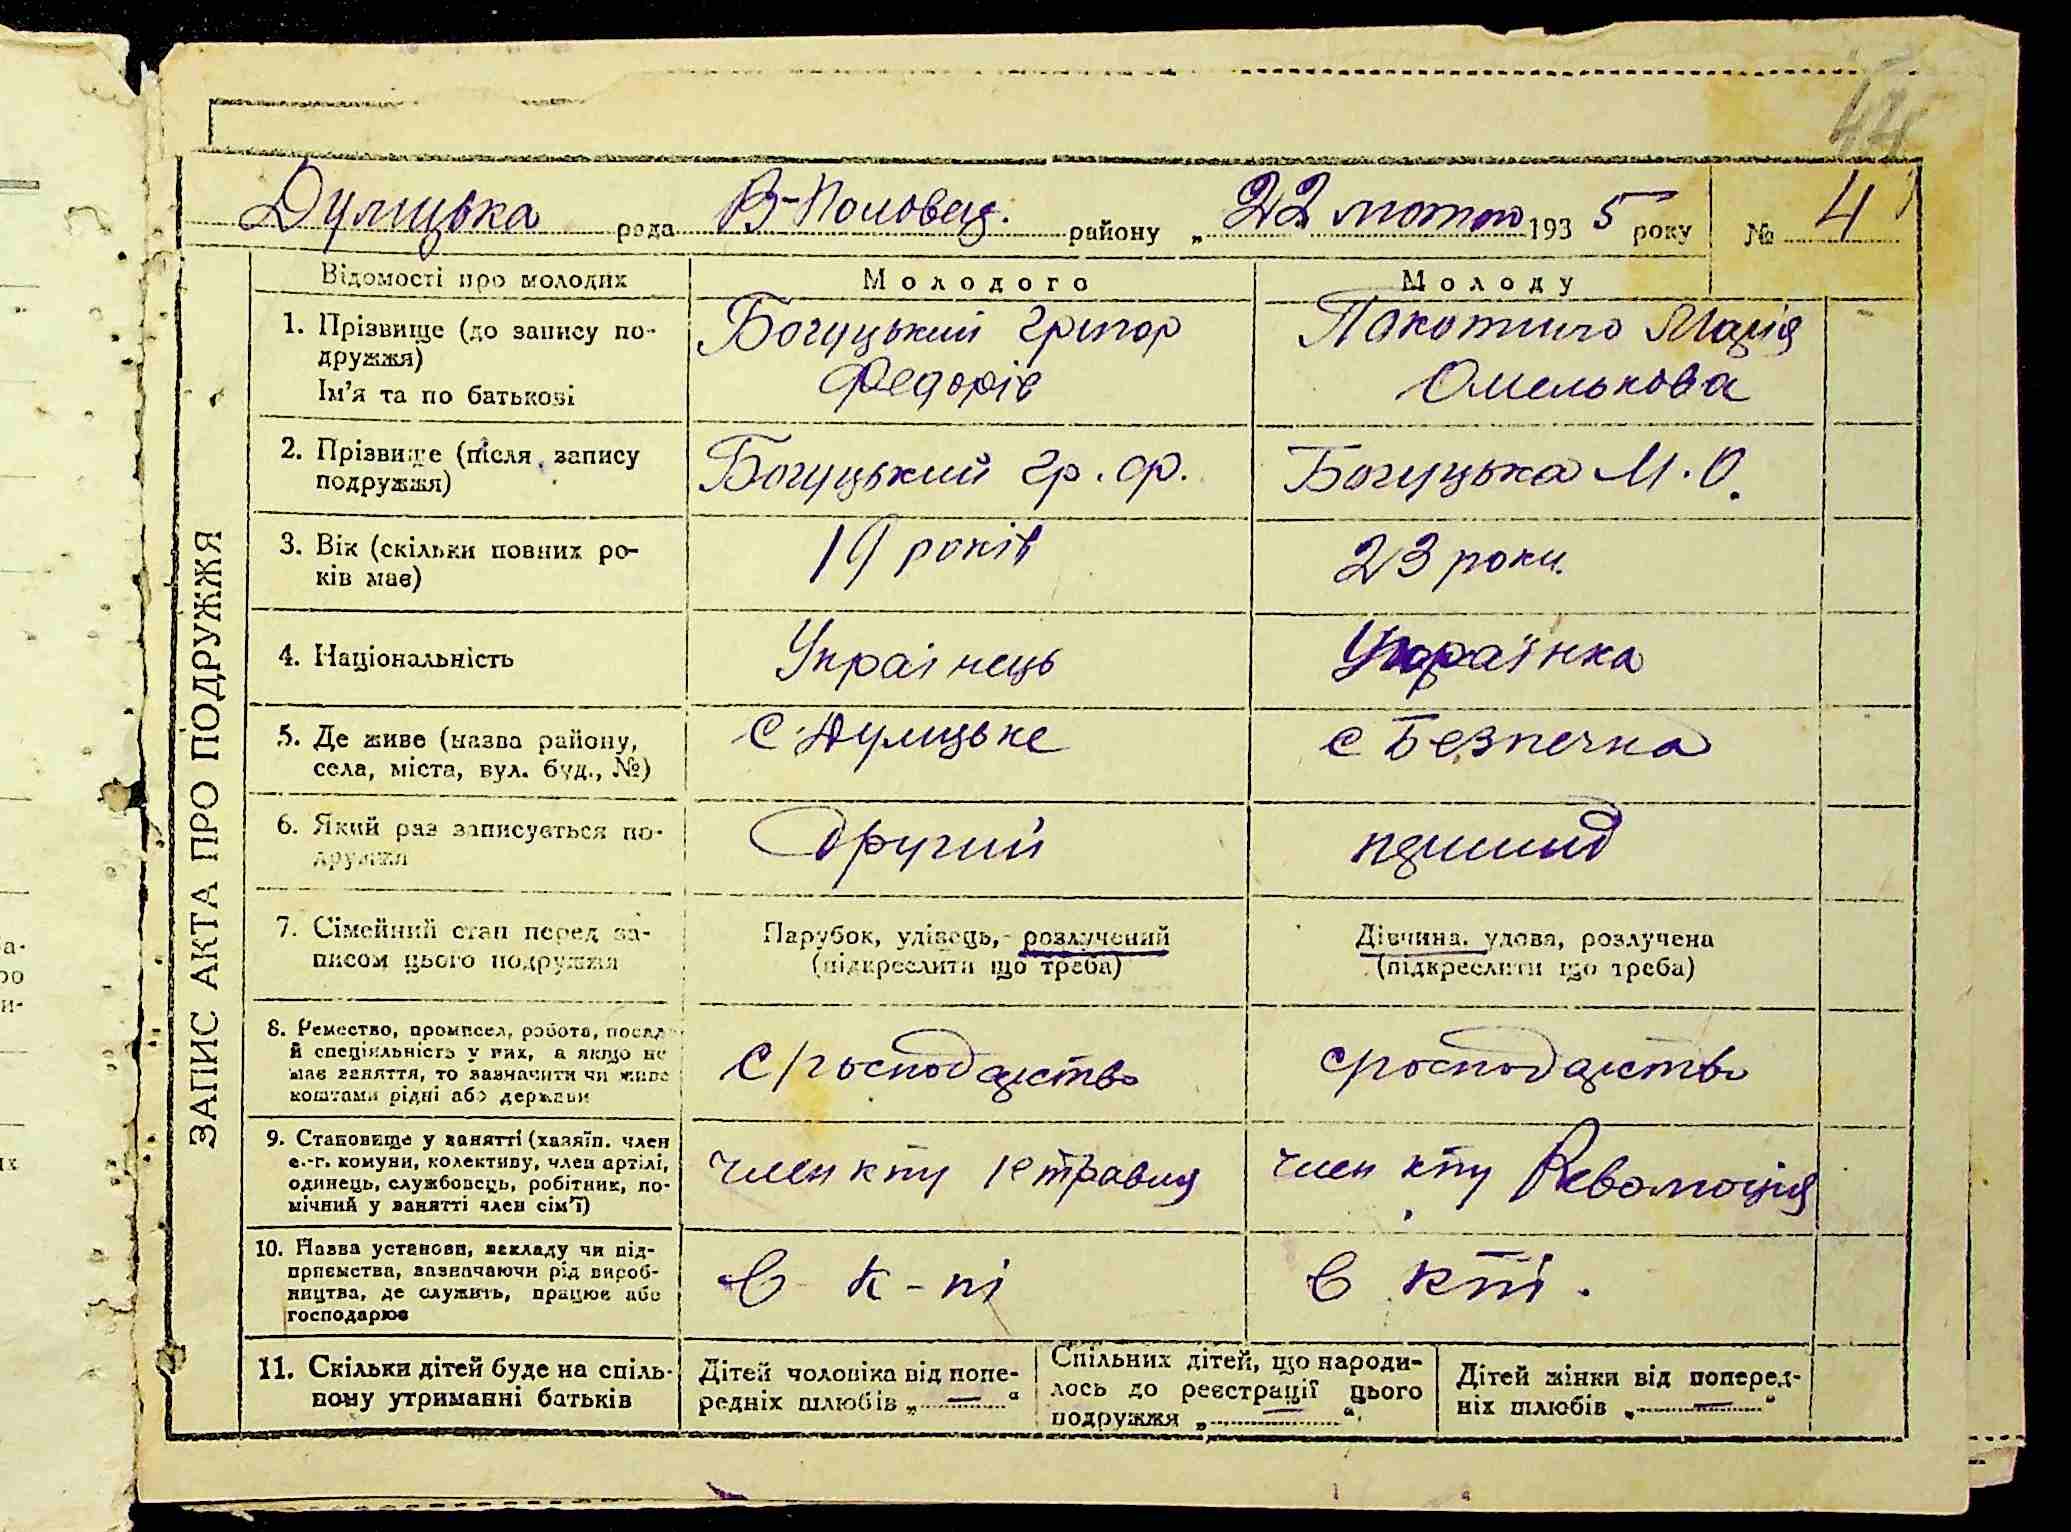 44
Дулицька рада В-Половец. району „ 22 лютого 193 5 року № 4
Відомості про молодих Молодого Молоду
1. Прізвище (до запису по- Богуцький Грігор Макотина Марія
дружжя) Федорів Омелькова
Ім'я та по батькові
2. Прізвище (після запису Богуцький Гр. Ф. Богуцька М. О.
подружжя)
3. Вік (скільки повних ро- 19 років 23 роки.
ків має)
4. Національність Українець Українка
5. Де живе (назва району, с Дулицьке с Безпечна
села, міста, вул. буд., №)
6. Який раз записується по- Другий перший
дружжя
7. Сімейний стан перед за- Парубок, удівець, розлучений Дівчина, удова, розлучена
писом цього подружжя (підкреслити що треба) (підкреслити що треба)
8. Ремество, промисел, робота, посад
й спеціяльність у них, а якщо не с господарство с господарство
має заняття, то зазначити чи живе
коштами рідні або держави
9. Становище у занятті (хазяїн, член
с.-г. комуни, колективу, член артілі, член кпу 1е травня член кпу Революція
одинець, службовець, робітник, по-
мічний у занятті член сім'ї)
10. Назва установи, закладу чи під-
приємства, зазначаючи рід вироб- в к-пі в кпі.
ництва, де служить, працює або
господарює
11. Скільки дітей буде на спіль- Дітей чоловіка від попе- Спільних дітей, що народи- Дітей жінки від поперед-
ному утриманні батьків редніх шлюбів „ — “ лось до реєстрації цього ніх шлюбів „ — “
подружжя „ — “
ЗАПИС АКТА ПРО ПОДРУЖЖЯ